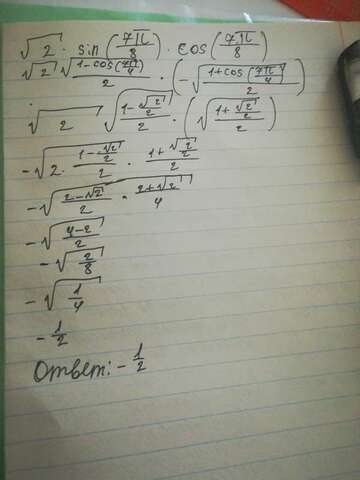 √2 · sin(7π/8) · cos(7π/8)
√2 √((1-cos(7π/4))/2) · (-√((1+cos(7π/4))/2))
√2 √((1-√2/2)/2) · (√((1+√2/2)/2))
-√(2 · (1-√2/2)/2 · (1+√2/2)/2)
-√((2-√2)/2 · (2+√2)/4)
-√((4-2)/2)
-√(2/8)
-√(1/4)
-1/2
Ответ: -1/2